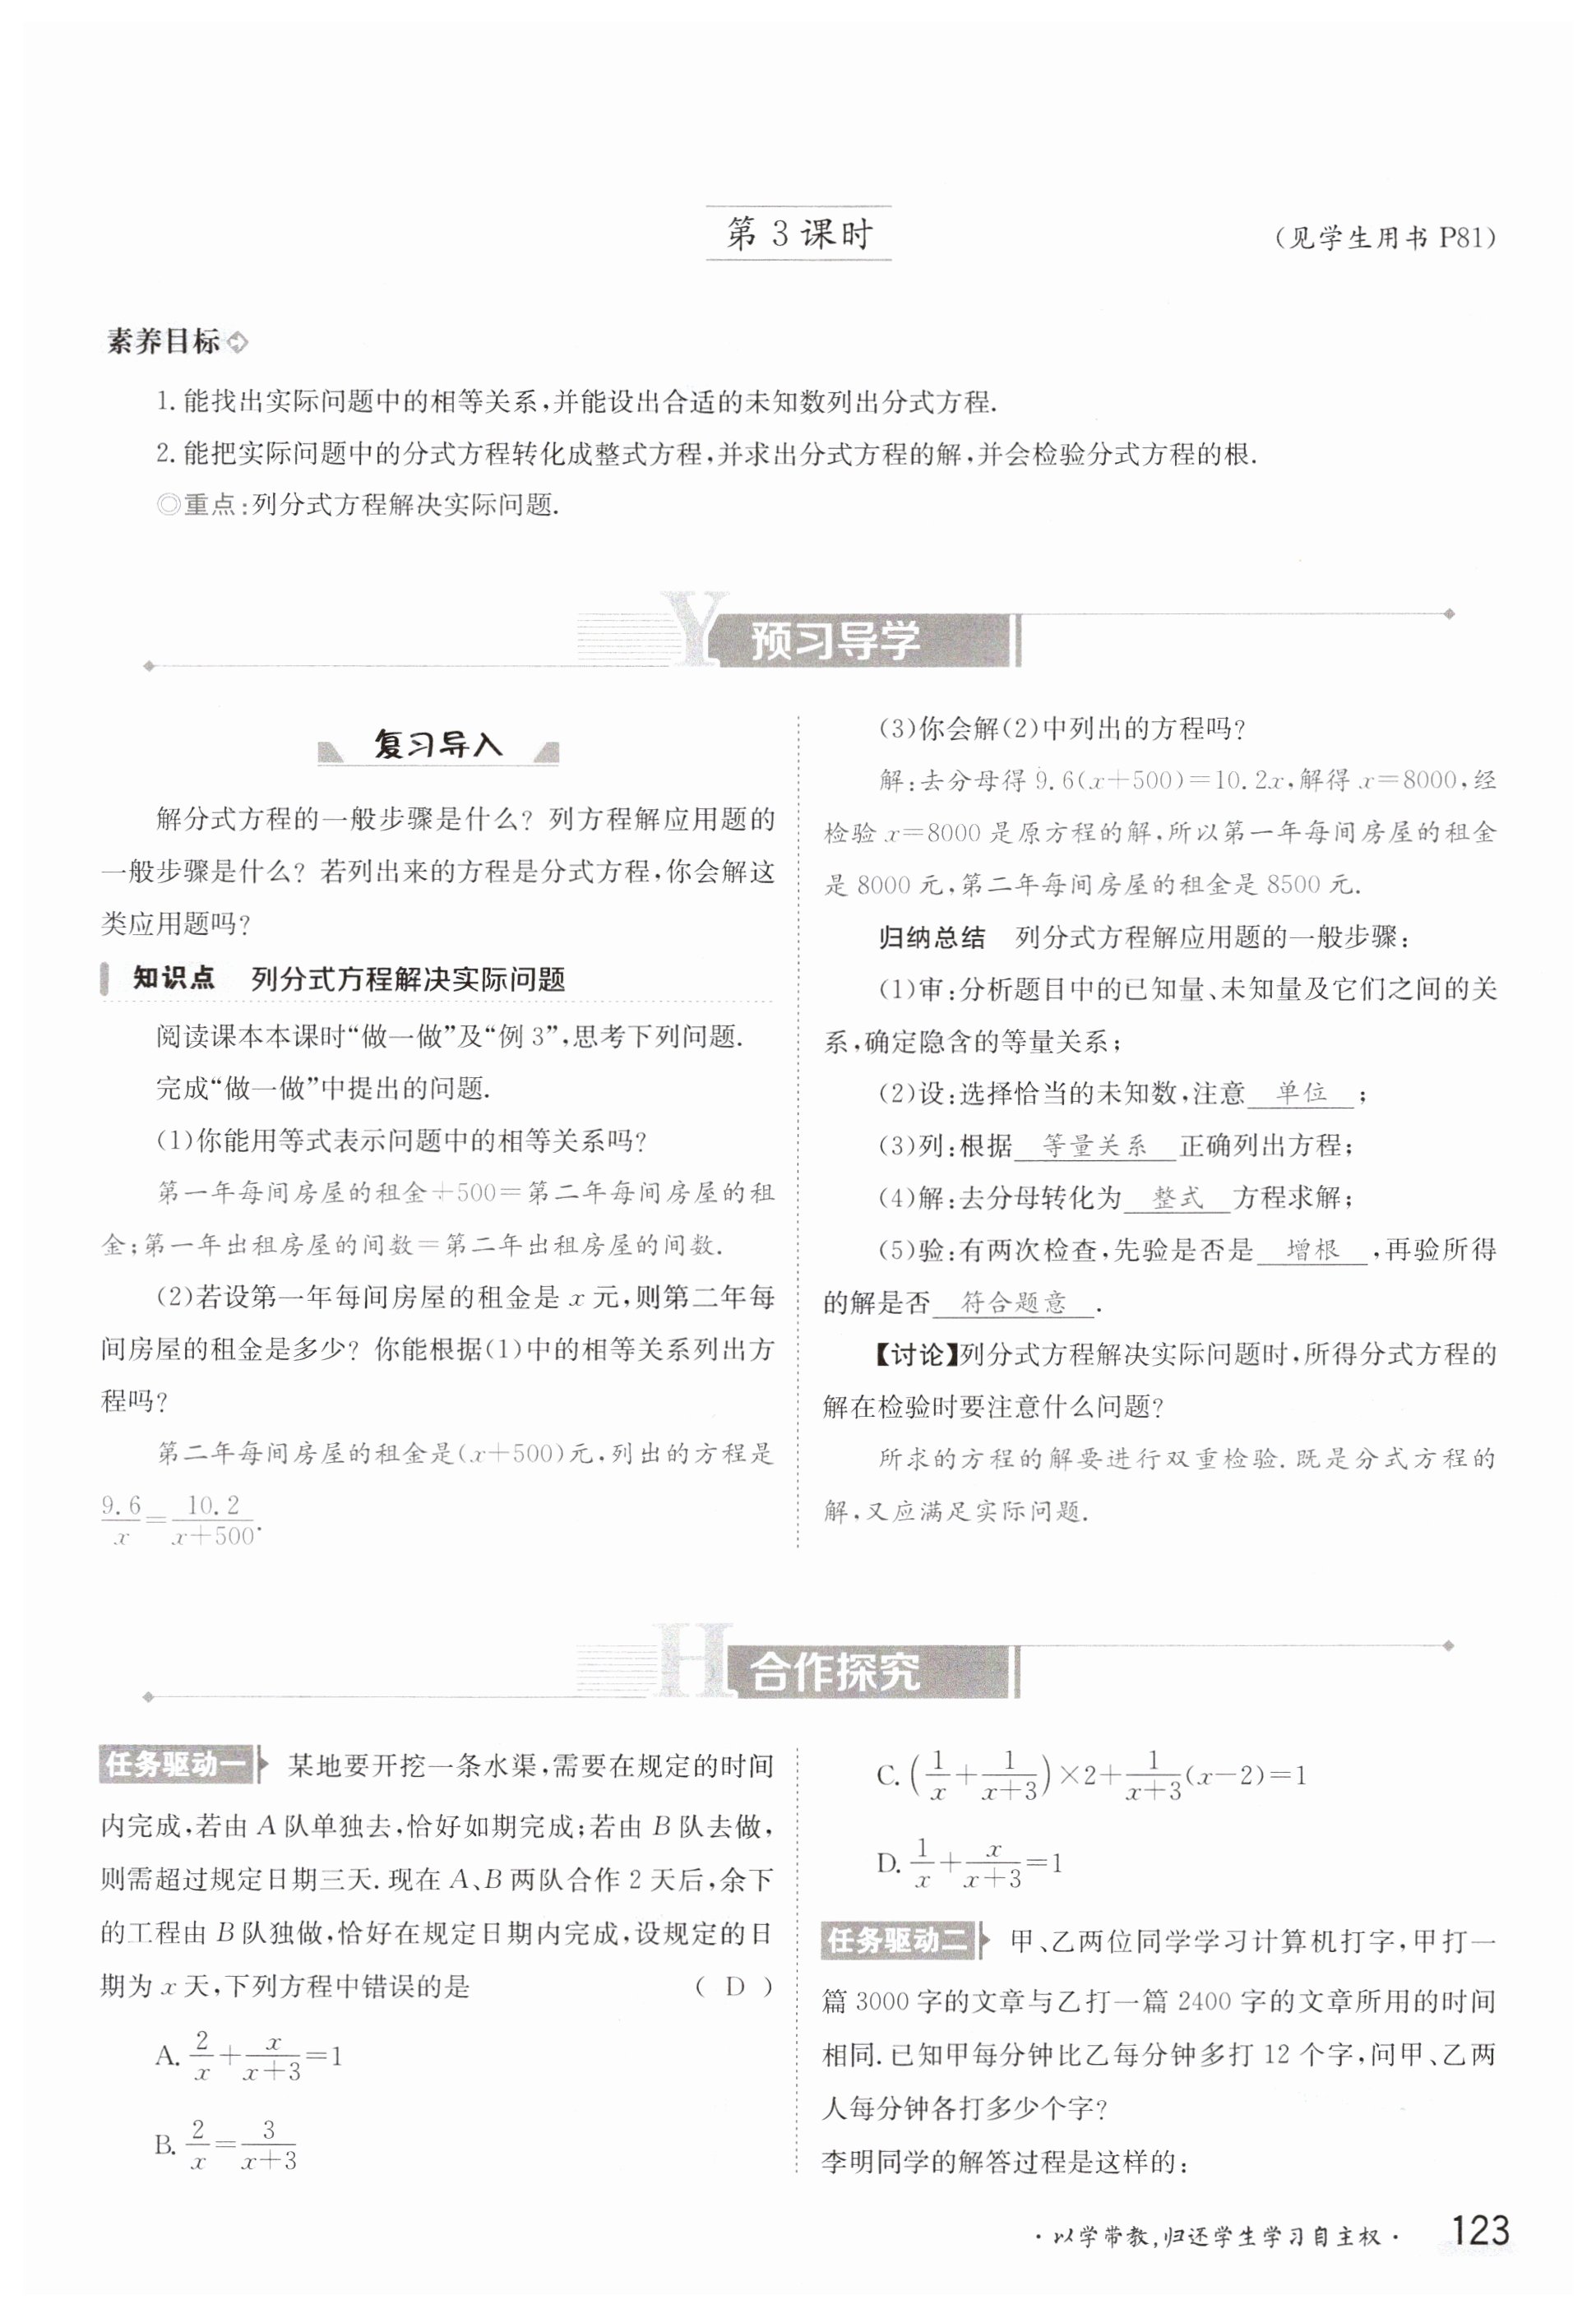 第 3 课时
(见学生用书 P81)
素养目标
1. 能找出实际问题中的相等关系,并能设出合适的未知数列出分式方程.
2. 能把实际问题中的分式方程转化成整式方程,并求出分式方程的解,并会检验分式方程的根.
◎重点:列分式方程解决实际问题.
Y 预习导学
复习导入
解分式方程的一般步骤是什么? 列方程解应用题的
一般步骤是什么? 若列出来的方程是分式方程,你会解这
类应用题吗?
知识点 列分式方程解决实际问题
阅读课本本课时“做一做”及“例 3”,思考下列问题.
完成“做一做”中提出的问题.
(1)你能用等式表示问题中的相等关系吗?
第一年每间房屋的租金+500=第二年每间房屋的租
金;第一年出租房屋的间数=第二年出租房屋的间数.
(2)若设第一年每间房屋的租金是 x 元,则第二年每
间房屋的租金是多少? 你能根据(1)中的相等关系列出方
程吗?
第二年每间房屋的租金是(x+500)元,列出的方程是
9.6/x=10.2/(x+500).
(3)你会解(2)中列出的方程吗?
解:去分母得 9.6(x+500)=10.2x,解得 x=8000,经
检验 x=8000 是原方程的解,所以第一年每间房屋的租金
是 8000 元,第二年每间房屋的租金是 8500 元.
归纳总结 列分式方程解应用题的一般步骤:
(1)审:分析题目中的已知量、未知量及它们之间的关
系,确定隐含的等量关系;
(2)设:选择恰当的未知数,注意 单位 ;
(3)列:根据 等量关系 正确列出方程;
(4)解:去分母转化为 整式 方程求解;
(5)验:有两次检查,先验是否是 增根 ,再验所得
的解是否 符合题意 .
【讨论】列分式方程解决实际问题时,所得分式方程的
解在检验时要注意什么问题?
所求的方程的解要进行双重检验.既是分式方程的
解,又应满足实际问题.
H 合作探究
任务驱动一 某地要开挖一条水渠,需要在规定的时间
内完成,若由 A 队单独去,恰好如期完成;若由 B 队去做,
则需超过规定日期三天.现在 A、B 两队合作 2 天后,余下
的工程由 B 队独做,恰好在规定日期内完成,设规定的日
期为 x 天,下列方程中错误的是 ( D )
A. 2/x+x/(x+3)=1
B. 2/x=3/(x+3)
C. (1/x+1/(x+3))×2+1/(x+3)(x−2)=1
D. 1/x+x/(x+3)=1
任务驱动二 甲、乙两位同学学习计算机打字,甲打一
篇 3000 字的文章与乙打一篇 2400 字的文章所用的时间
相同.已知甲每分钟比乙每分钟多打 12 个字,问甲、乙两
人每分钟各打多少个字?
李明同学的解答过程是这样的:
·以学带教,归还学生学习自主权· 123